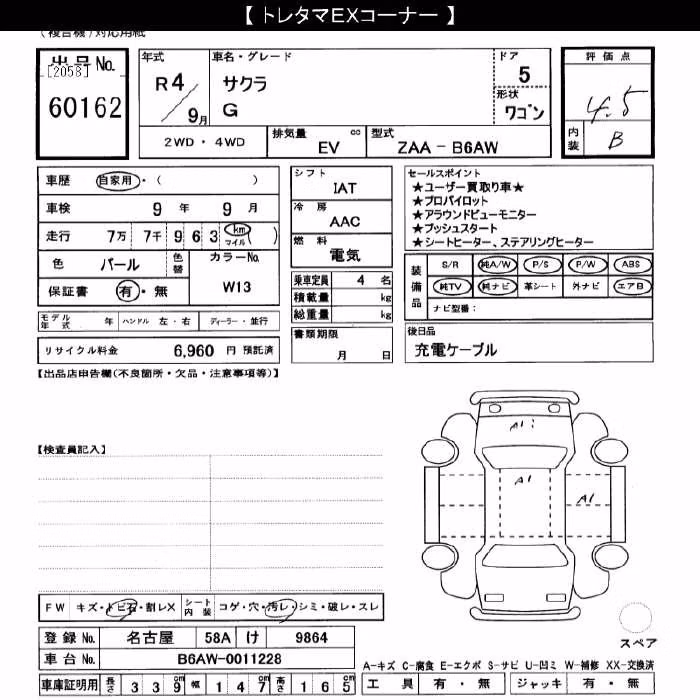 【 トレタマEXコーナー 】
(複合機)対応用紙
出品No.
[2058]
60162
年式 R4／9月
車名・グレード
サクラ
G
ドア 5
形状 ワゴン
2WD・4WD
排気量 EV cc
型式 ZAA－B6AW
評価点
4.5
内装 B
車歴 自家用・( )
車検 9年 9月
走行 7万 7千 9 6 3 (km マイル)
色 パール 色替
カラーNo. W13
保証書 有・無
モデル年式 年 ハンドル 左・右 ディーラー・並行
リサイクル料金 6,960 円 預託済
シフト
IAT
冷房
AAC
燃料
電気
乗車定員 4 名
積載量 kg
総重量 kg
書類期限
月 日
セールスポイント
★ユーザー買取り車★
★プロパイロット
★アラウンドビューモニター
★プッシュスタート
★シートヒーター、ステアリングヒーター
装備品
S/R 純A/W P/S P/W ABS
純TV 純ナビ 革シート 外ナビ エアB
ナビ型番：
後日品
充電ケーブル
【出品店申告欄(不良箇所・欠品・注意事項等)】
【検査員記入】
A1
A1
A1
FW キズ・トビ石・割レX シート内装 コゲ・穴・汚レ・シミ・破レ・スレ
登録No. 名古屋 58A け 9864
車台No. B6AW-0011228
車庫証明用 長さ 3 3 9cm 幅 1 4 7cm 高さ 1 6 5cm
スペア
A-キズ C-腐食 E-エクボ S-サビ U-凹ミ W-補修 XX-交換済
工具 有・無 ジャッキ 有・無